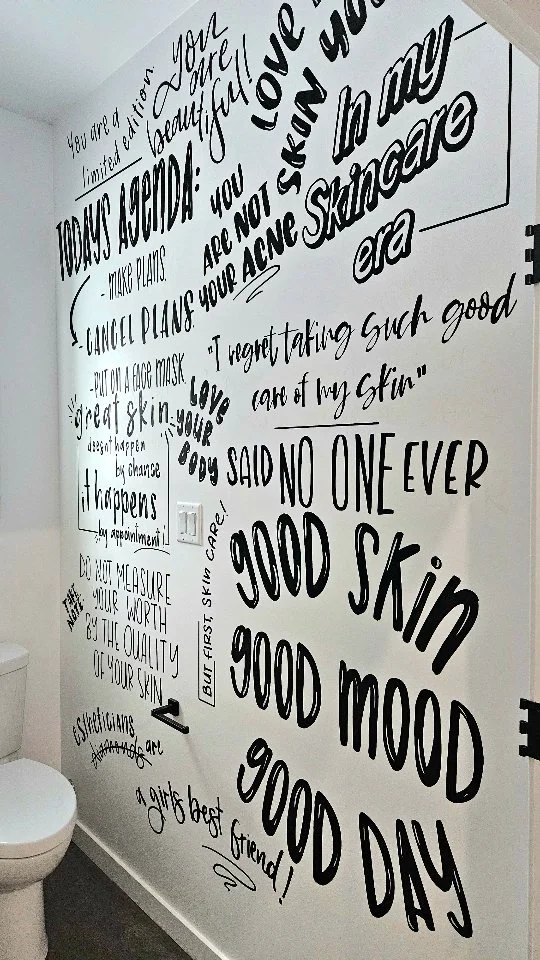 You are a
limited edition.
You
are
beautiful!
LOVE
SKIN YOU
In my
Skincare
era
TODAYS AGENDA:
- MAKE PLANS.
- CANCEL PLANS.
- PUT ON A FACE MASK
YOU
ARE NOT
YOUR ACNE
"I regret taking such good
care of my skin"
SAID NO ONE EVER
great skin
doesnt happen
by chance
it happens
by appointment!
LOVE
YOUR
BODY
BUT FIRST, SKIN CARE!
GOOD SKin
GOOD MOOD
GOOD DAY
DO NOT MEASURE
YOUR WORTH
BY THE QUALITY
OF YOUR SKIN
Estheticians
diamonds are
a girls best
friend!